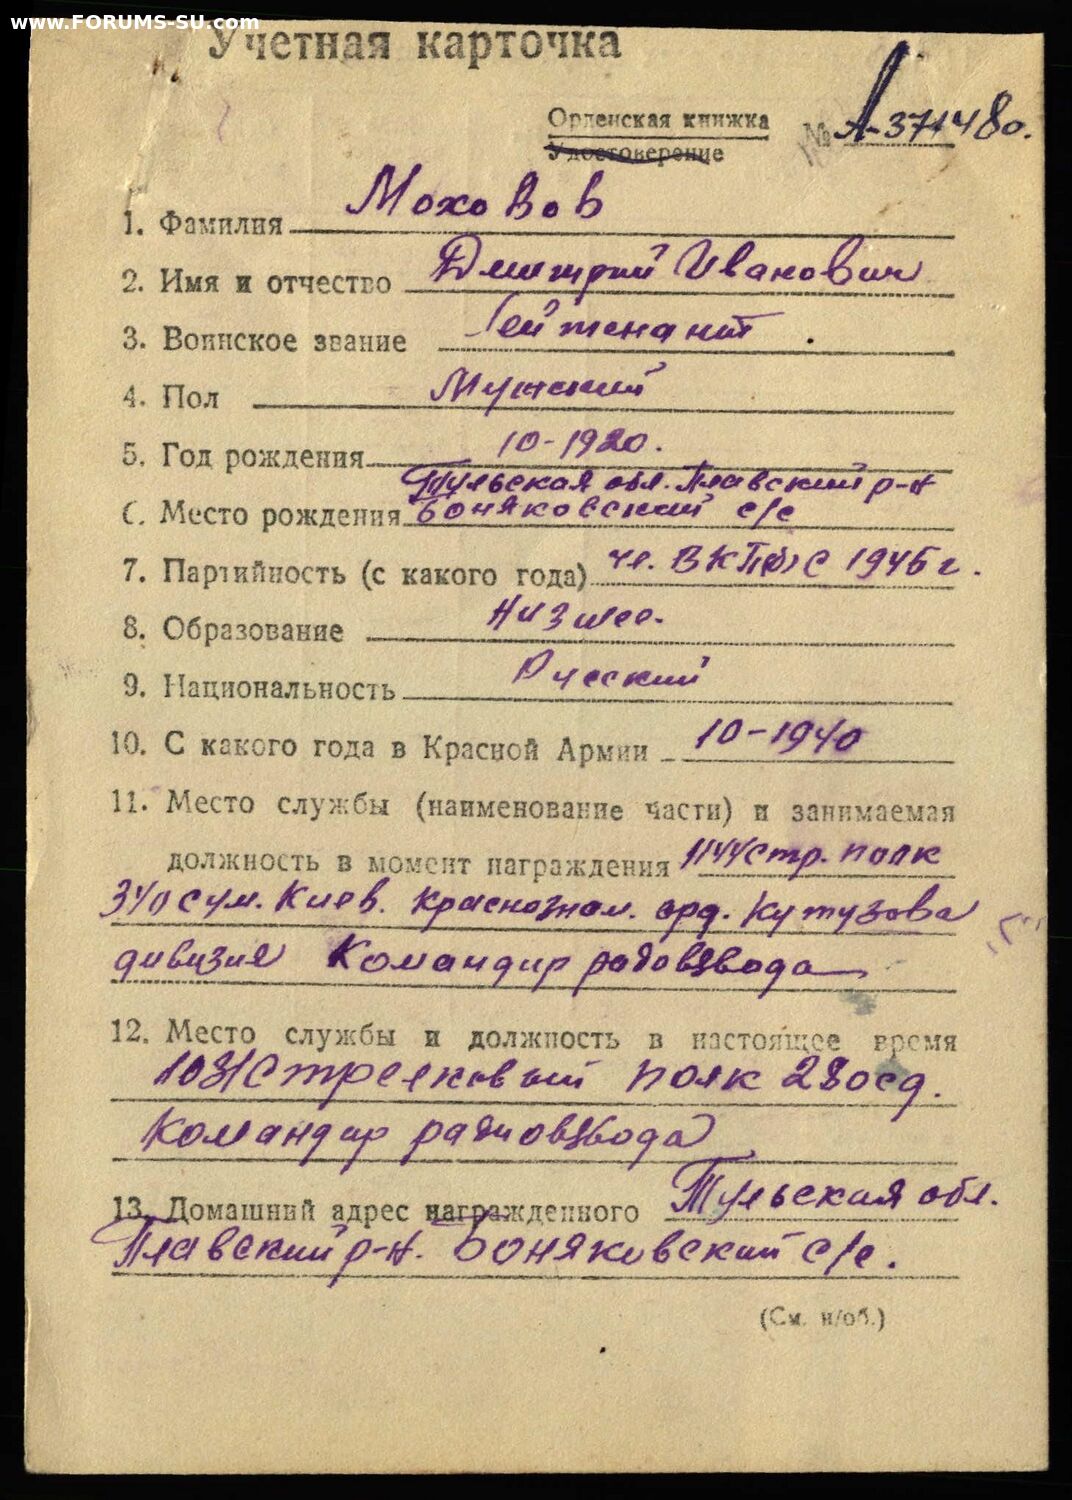 www.FORUMS-SU.com
Учетная карточка
Орденская книжка
Удостоверение
№ А-371480.
1. Фамилия Моховов
2. Имя и отчество Дмитрий Иванович
3. Воинское звание Лейтенант
4. Пол Мужской
5. Год рождения 10-1920.
Тульская обл. Плавский р-н
6. Место рождения Боняковский с/с
7. Партийность (с какого года) чл. ВКП(б) с 1945 г.
8. Образование Низшее.
9. Национальность Русский
10. С какого года в Красной Армии 10-1940
11. Место службы (наименование части) и занимаемая
должность в момент награждения 1144 стр. полк
340 сум. Киев. краснознам. орд. Кутузова
дивизия Командир радиовзвода
12. Место службы и должность в настоящее время
1031 Стрелковый полк 280 сд.
Командир радиовзвода
13. Домашний адрес награжденного Тульская обл.
Плавский р-н. Боняковский с/с.
(См. н/об.)